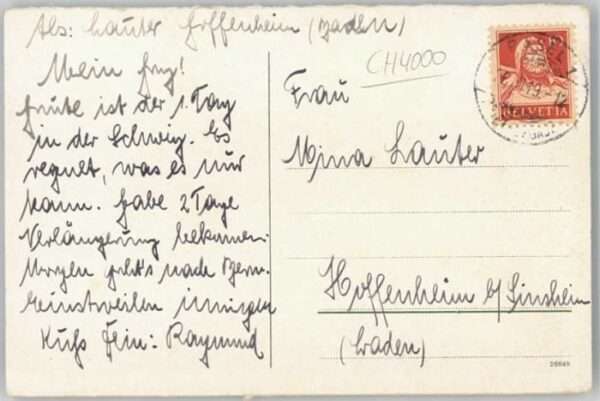 Abs: Lauter Hoffenheim (Baden)
CH4000
Mein Frz!
Heute ist der 1. Tag
in der Schweiz. Es
regnet, was es nur
kann. Habe 2 Tage
Verlängerung bekommen.
Morgen geht's nach Bern.
Einstweilen innigen
Kuß Dein: Raymund
Frau
Mina Lauter
Hoffenheim b/ Sinsheim
(Baden)
HELVETIA